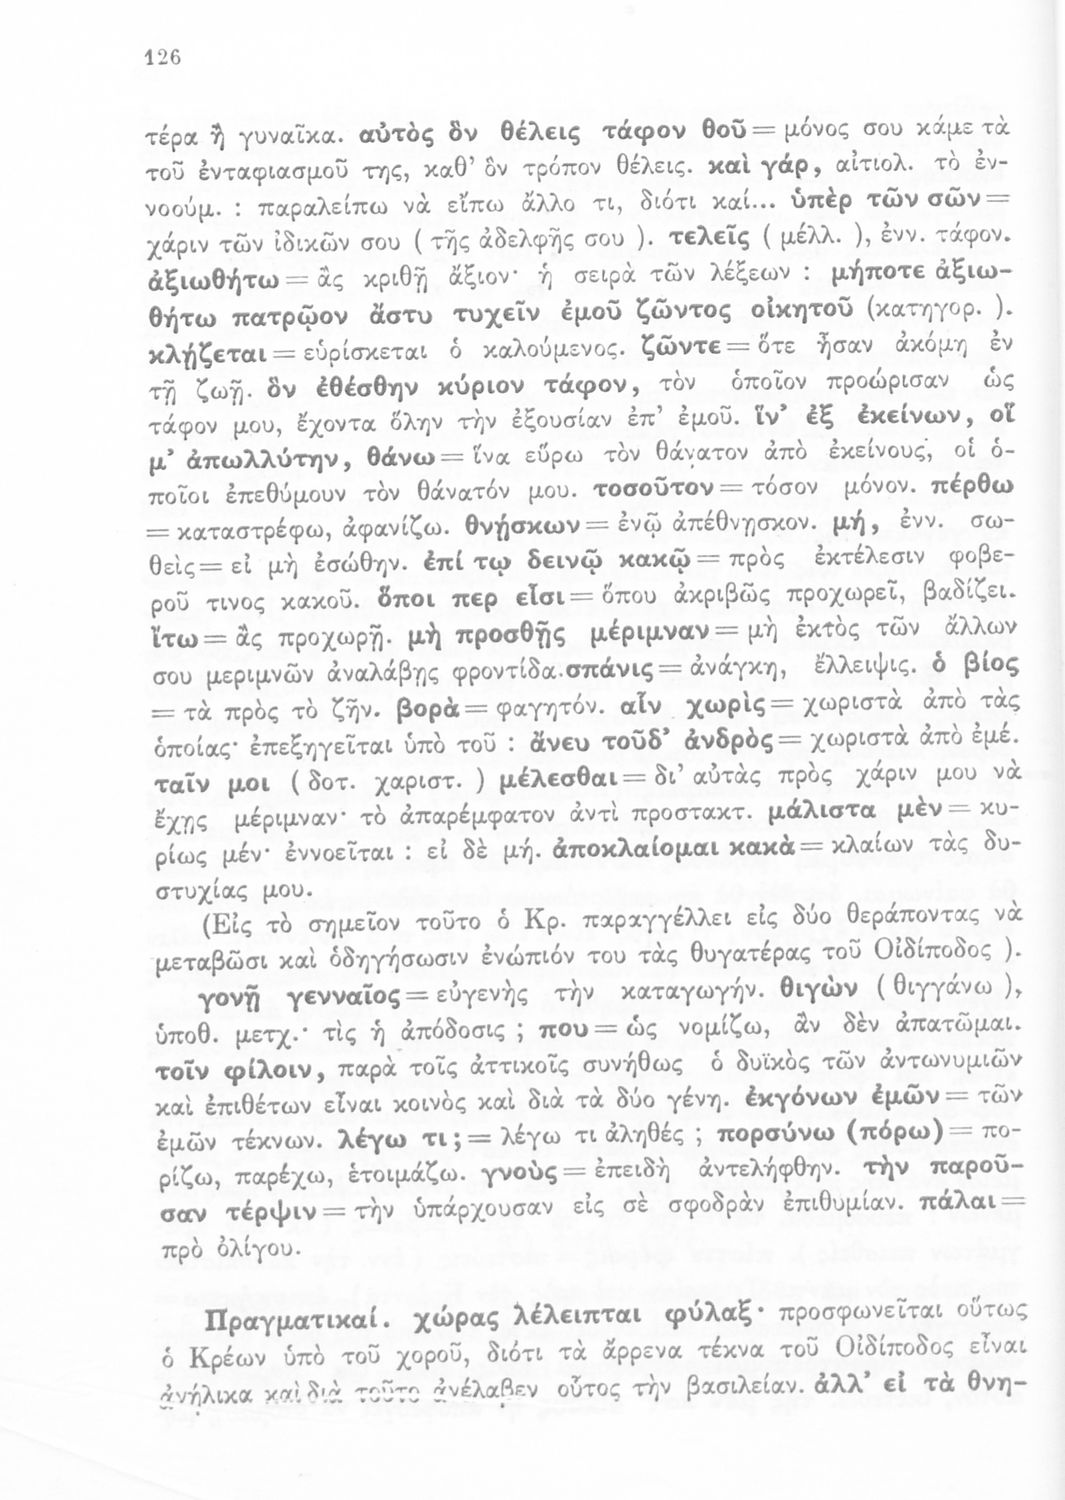 126
τέρα ἢ γυναῖκα. αὐτὸς ὃν θέλεις τάφον θοῦ = μόνος σου κάμε τὰ
τοῦ ἐνταφιασμοῦ της, καθ’ ὃν τρόπον θέλεις. καὶ γάρ, αἰτιολ. τὸ ἐν-
νοούμ. : παραλείπω νὰ εἴπω ἄλλο τι, διότι καί... ὑπὲρ τῶν σῶν =
χάριν τῶν ἰδικῶν σου ( τῆς ἀδελφῆς σου ). τελεῖς ( μέλλ. ), ἐνν. τάφον.
ἀξιωθήτω = ἂς κριθῇ ἄξιον· ἡ σειρὰ τῶν λέξεων : μήποτε ἀξιω-
θήτω πατρῷον ἄστυ τυχεῖν ἐμοῦ ζῶντος οἰκητοῦ (κατηγορ. ).
κλῄζεται = εὑρίσκεται ὁ καλούμενος. ζῶντε = ὅτε ἦσαν ἀκόμη ἐν
τῇ ζωῇ. ὃν ἐθέσθην κύριον τάφον, τὸν ὁποῖον προώρισαν ὡς
τάφον μου, ἔχοντα ὅλην τὴν ἐξουσίαν ἐπ’ ἐμοῦ. ἵν’ ἐξ ἐκείνων, οἵ
μ’ ἀπωλλύτην, θάνω = ἵνα εὕρω τὸν θάνατον ἀπὸ ἐκείνους, οἱ ὁ-
ποῖοι ἐπεθύμουν τὸν θάνατόν μου. τοσοῦτον = τόσον μόνον. πέρθω
= καταστρέφω, ἀφανίζω. θνῄσκων = ἐνῷ ἀπέθνῃσκον. μή, ἐνν. σω-
θεὶς = εἰ μὴ ἐσώθην. ἐπί τῳ δεινῷ κακῷ = πρὸς ἐκτέλεσιν φοβε-
ροῦ τινος κακοῦ. ὅποι περ εἶσι = ὅπου ἀκριβῶς προχωρεῖ, βαδίζει.
ἴτω = ἂς προχωρῇ. μὴ προσθῇς μέριμναν = μὴ ἐκτὸς τῶν ἄλλων
σου μεριμνῶν ἀναλάβῃς φροντίδα. σπάνις = ἀνάγκη, ἔλλειψις. ὁ βίος
= τὰ πρὸς τὸ ζῆν. βορὰ = φαγητόν. αἷν χωρὶς = χωριστὰ ἀπὸ τὰς
ὁποίας· ἐπεξηγεῖται ὑπὸ τοῦ : ἄνευ τοῦδ’ ἀνδρὸς = χωριστὰ ἀπὸ ἐμέ.
ταῖν μοι ( δοτ. χαριστ. ) μέλεσθαι = δι’ αὐτὰς πρὸς χάριν μου νὰ
ἔχῃς μέριμναν· τὸ ἀπαρέμφατον ἀντὶ προστακτ. μάλιστα μὲν = κυ-
ρίως μέν· ἐννοεῖται : εἰ δὲ μή. ἀποκλαίομαι κακὰ = κλαίων τὰς δυ-
στυχίας μου.
(Εἰς τὸ σημεῖον τοῦτο ὁ Κρ. παραγγέλλει εἰς δύο θεράποντας νὰ
μεταβῶσι καὶ ὁδηγήσωσιν ἐνώπιόν του τὰς θυγατέρας τοῦ Οἰδίποδος ).
γονῇ γενναῖος = εὐγενὴς τὴν καταγωγήν. θιγὼν ( θιγγάνω ),
ὑποθ. μετχ.· τὶς ἡ ἀπόδοσις ; που = ὡς νομίζω, ἂν δὲν ἀπατῶμαι.
τοῖν φίλοιν, παρὰ τοῖς ἀττικοῖς συνήθως ὁ δυϊκὸς τῶν ἀντωνυμιῶν
καὶ ἐπιθέτων εἶναι κοινὸς καὶ διὰ τὰ δύο γένη. ἐκγόνων ἐμῶν = τῶν
ἐμῶν τέκνων. λέγω τι ; = λέγω τι ἀληθές ; πορσύνω (πόρω) = πο-
ρίζω, παρέχω, ἑτοιμάζω. γνοὺς = ἐπειδὴ ἀντελήφθην. τὴν παροῦ-
σαν τέρψιν = τὴν ὑπάρχουσαν εἰς σὲ σφοδρὰν ἐπιθυμίαν. πάλαι =
πρὸ ὀλίγου.
Πραγματικαί. χώρας λέλειπται φύλαξ· προσφωνεῖται οὕτως
ὁ Κρέων ὑπὸ τοῦ χοροῦ, διότι τὰ ἄρρενα τέκνα τοῦ Οἰδίποδος εἶναι
ἀνήλικα καὶ διὰ τοῦτο ἀνέλαβεν οὗτος τὴν βασιλείαν. ἀλλ’ εἰ τὰ θνη-